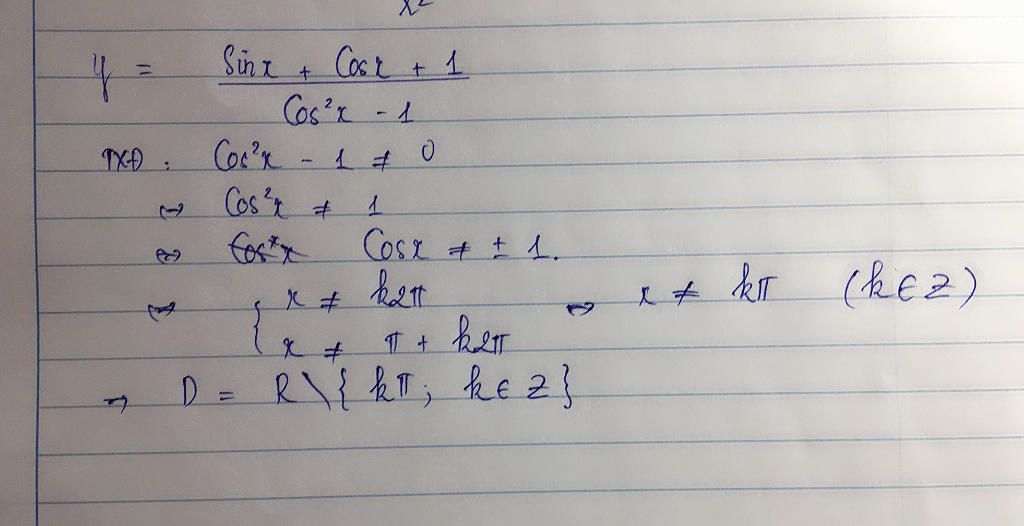 x²
y = Sinx + Cosx + 1
Cos²x - 1
TXĐ : Cos²x - 1 ≠ 0
↔ Cos²x ≠ 1
↔ Cos²x Cosx ≠ ± 1.
↔ { x ≠ k2π ↔ x ≠ kπ (k ∈ Z)
x ≠ π + k2π
→ D = R \ { kπ; k ∈ Z }